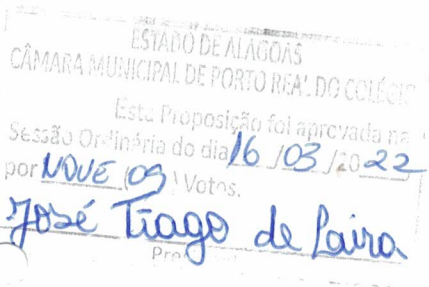 ESTADO DE ALAGOAS
CÂMARA MUNICIPAL DE PORTO REAL DO COLÉGIO
Esta Proposição foi aprovada na
Sessão Ordinária do dia 16 /03 /20 22
por NOVE (09) Votos.
José Tiago de